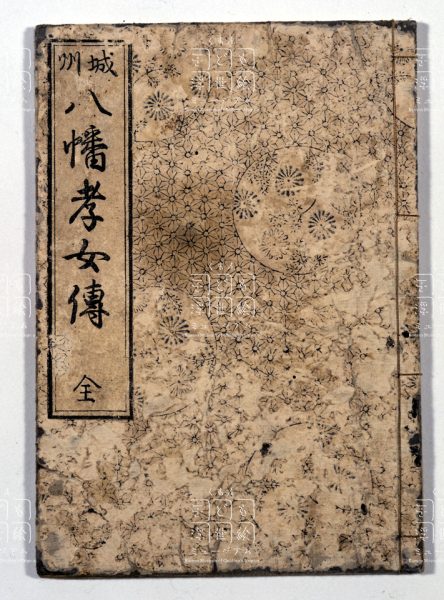 城州
八幡孝女傳
全